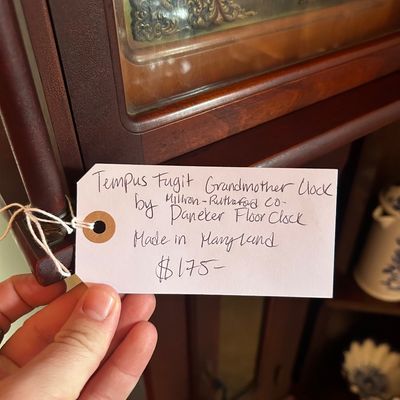 Tempus Fugit Grandmother Clock
by Millron-Rutherford CO-
Daneker Floor Clock
Made in Maryland
$175-